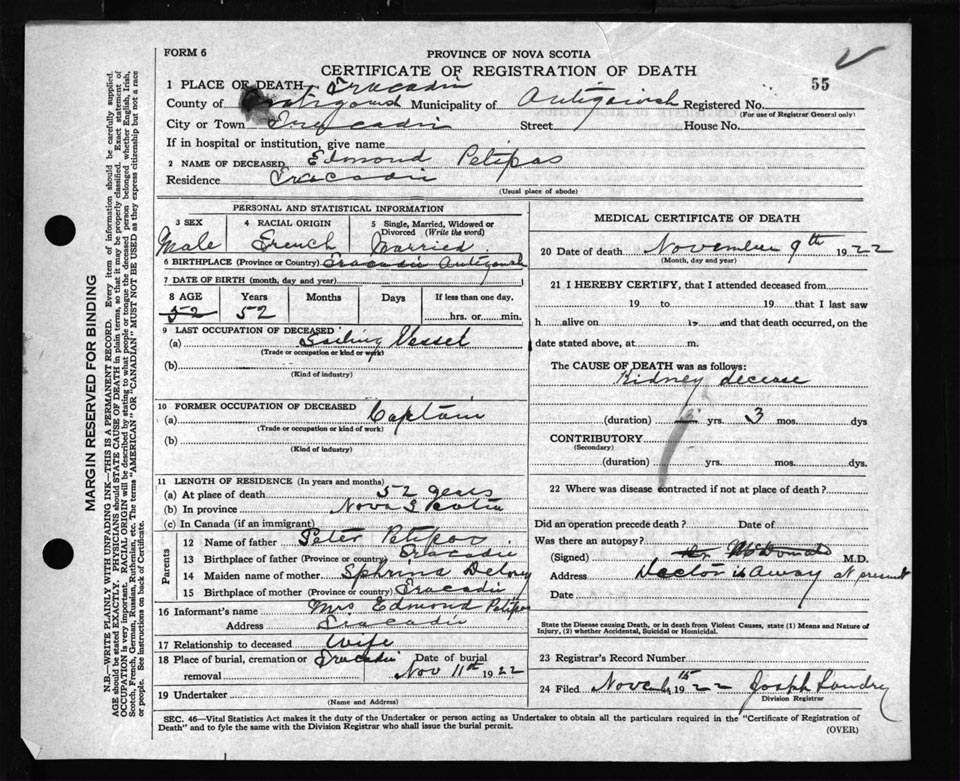 FORM 6
PROVINCE OF NOVA SCOTIA
CERTIFICATE OF REGISTRATION OF DEATH
55
1 PLACE OF DEATH— Tracadie
County of Antigonish Municipality of Antigonish Registered No.
(For use of Registrar General only)
City or Town Tracadie Street House No.
If in hospital or institution, give name
2 NAME OF DECEASED Edmond Petipas
Residence Tracadie
(Usual place of abode)
PERSONAL AND STATISTICAL INFORMATION
3 SEX 4 RACIAL ORIGIN 5 Single, Married, Widowed or Divorced (Write the word)
Male French Married
6 BIRTHPLACE (Province or Country) Tracadie Antigonish
7 DATE OF BIRTH (month, day and year)
8 AGE Years Months Days If less than one day,
52 52 hrs. or min.
9 LAST OCCUPATION OF DECEASED
(a) Sailing Vessel
(Trade or occupation or kind or work)
(b)
(Kind of industry)
10 FORMER OCCUPATION OF DECEASED
(a) Captain
(Trade or occupation or kind of work)
(b)
(Kind of industry)
11 LENGTH OF RESIDENCE (In years and months)
(a) At place of death 52 years
(b) In province Nova Scotia
(c) In Canada (if an immigrant)
Parents
12 Name of father Peter Petipas
13 Birthplace of father (Province or country) Tracadie
14 Maiden name of mother Sphrina Delorey
15 Birthplace of mother (Province or country) Tracadie
16 Informant's name Mrs Edmond Petipas
Address Tracadie
17 Relationship to deceased Wife
18 Place of burial, cremation or removal Tracadie Date of burial Nov 11th 1922
19 Undertaker
(Name and Address)
MEDICAL CERTIFICATE OF DEATH
20 Date of death November 9th 1922
(Month, day and year)
21 I HEREBY CERTIFY, that I attended deceased from
19 to 19 that I last saw
h alive on 19 and that death occurred, on the
date stated above, at m.
The CAUSE OF DEATH was as follows:
Kidney decease
(duration) yrs. 3 mos. dys
CONTRIBUTORY
(Secondary)
(duration) yrs. mos. dys.
22 Where was disease contracted if not at place of death?
Did an operation precede death? Date of
Was there an autopsy?
(Signed) Dr McDonald M.D.
Address Doctor is away at present
Date
State the Disease causing Death, or in death from Violent Causes, state (1) Means and Nature of Injury, (2) whether Accidental, Suicidal or Homicidal.
23 Registrar's Record Number
24 Filed November 15th 1922 Joseph Landry
Division Registrar
SEC. 46—Vital Statistics Act makes it the duty of the Undertaker or person acting as Undertaker to obtain all the particulars required in the "Certificate of Registration of
Death" and to fyle the same with the Division Registrar who shall issue the burial permit.
(OVER)
MARGIN RESERVED FOR BINDING
N.B.—WRITE PLAINLY WITH UNFADING INK—THIS IS A PERMANENT RECORD. Every item of information should be carefully supplied.
AGE should be stated EXACTLY. PHYSICIANS should STATE CAUSE OF DEATH in plain terms, so that it may be properly classified. Exact statement of
OCCUPATION is very important. RACIAL ORIGIN will be described by stating to what people or tongue the deceased person belonged whether English, Irish,
Scotch, French, German, Russian, Ruthenian, etc. The terms "AMERICAN" OR "CANADIAN" MUST NOT BE USED as they express citizenship but not a race
or people. See instructions on back of Certificate.